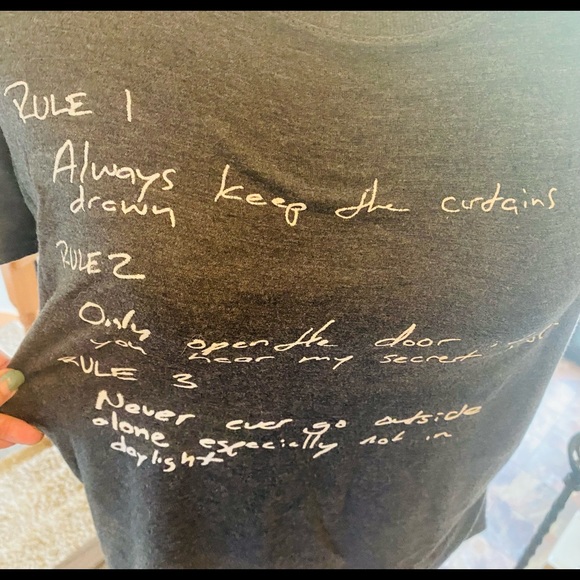 RULE 1
Always keep the curtains
drawn
RULE 2
Only open the door
you hear my secret
RULE 3
Never ever go outside
alone especially not in
daylight